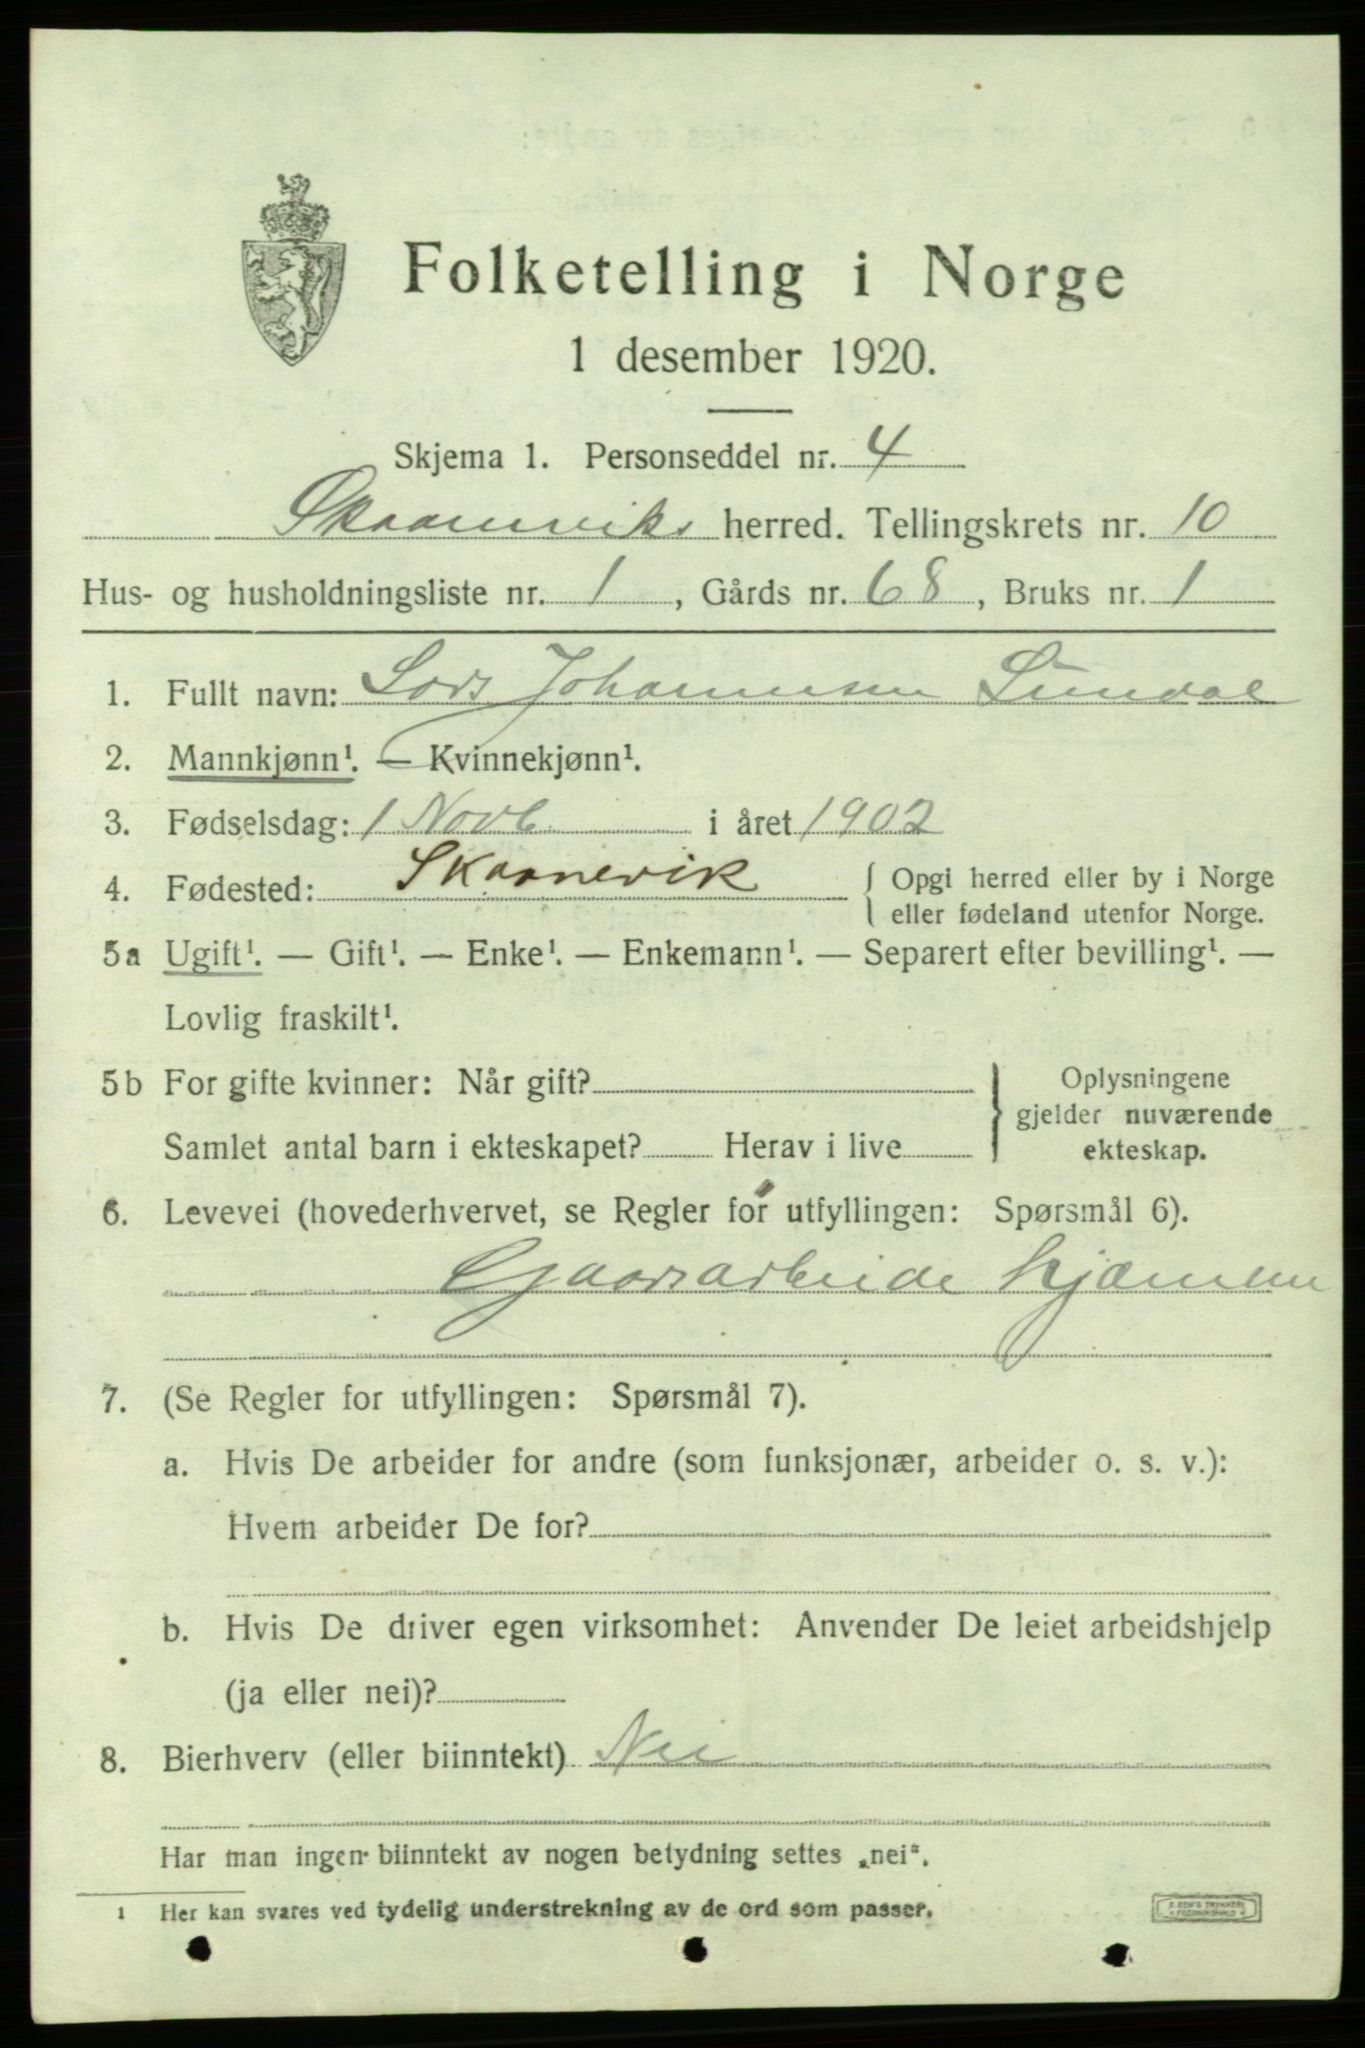 Folketelling i Norge
1 desember 1920.
Skjema 1. Personseddel nr. 4
Skaaneviks herred. Tellingskrets nr. 10
Hus- og husholdningsliste nr. 1, Gårds nr. 68, Bruks nr. 1
1. Fullt navn: Lars Johannesen Sundal
2. Mannkjønn¹. — Kvinnekjønn¹.
3. Fødselsdag: 1 Novb. i året 1902
4. Fødested: Skaanevik { Opgi herred eller by i Norge
eller fødeland utenfor Norge.
5a Ugift¹. — Gift¹. — Enke¹. — Enkemann¹. — Separert efter bevilling¹. —
Lovlig fraskilt¹.
5b For gifte kvinner: Når gift? } Oplysningene
gjelder nuværende
Samlet antal barn i ekteskapet? Herav i live ekteskap.
6. Levevei (hovederhvervet, se Regler for utfyllingen: Spørsmål 6).
Gaarsarbeide hjæmme
7. (Se Regler for utfyllingen: Spørsmål 7).
a. Hvis De arbeider for andre (som funksjonær, arbeider o. s. v.):
Hvem arbeider De for?
b. Hvis De driver egen virksomhet: Anvender De leiet arbeidshjelp
(ja eller nei)?
8. Bierhverv (eller biinntekt) Nei
Har man ingen biinntekt av nogen betydning settes „nei".
1 Her kan svares ved tydelig understrekning av de ord som passer.